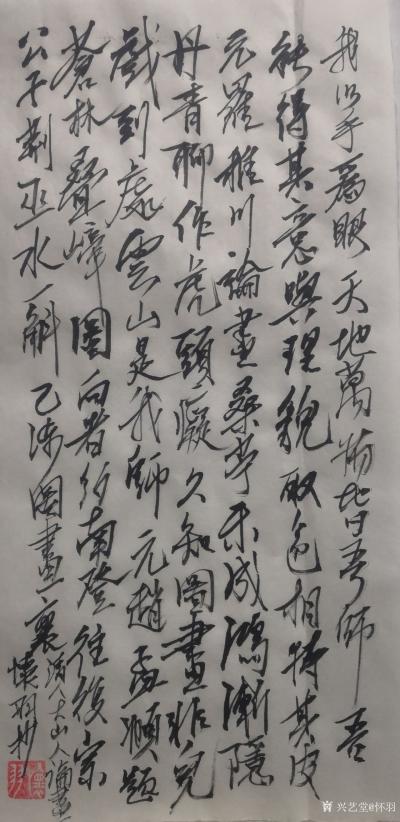 我以手為眼天地萬物皆吾師吾
能得其意與理貌取色相特其皮
元羅稚川論畫桑苧未成鴻漸隱
丹青聊作虎頭癡久知圖畫非兒
戲到處雲山是我師元趙孟頫題
蒼林疊嶂圖向者約南登往復宗
公子荆巫水一斛乙涉圖畫裏清八大山人論畫
懷羽抄
兴艺堂@怀羽